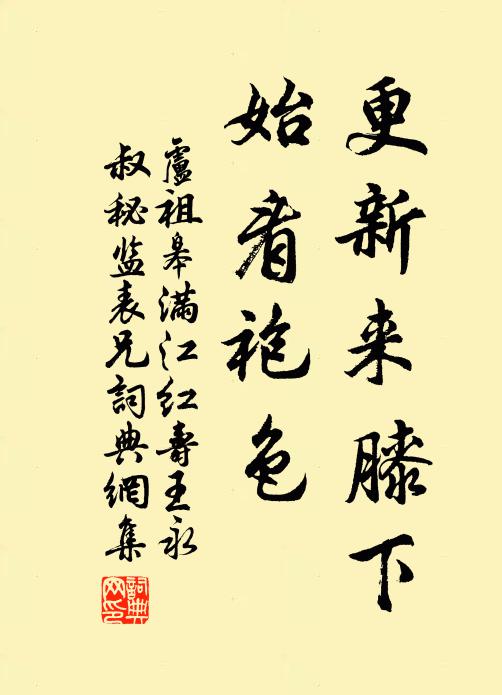 更新来膝下
始看袍色
盧祖皋满江红壽王永
叔秘监表兄詞典網集
詞典
网印